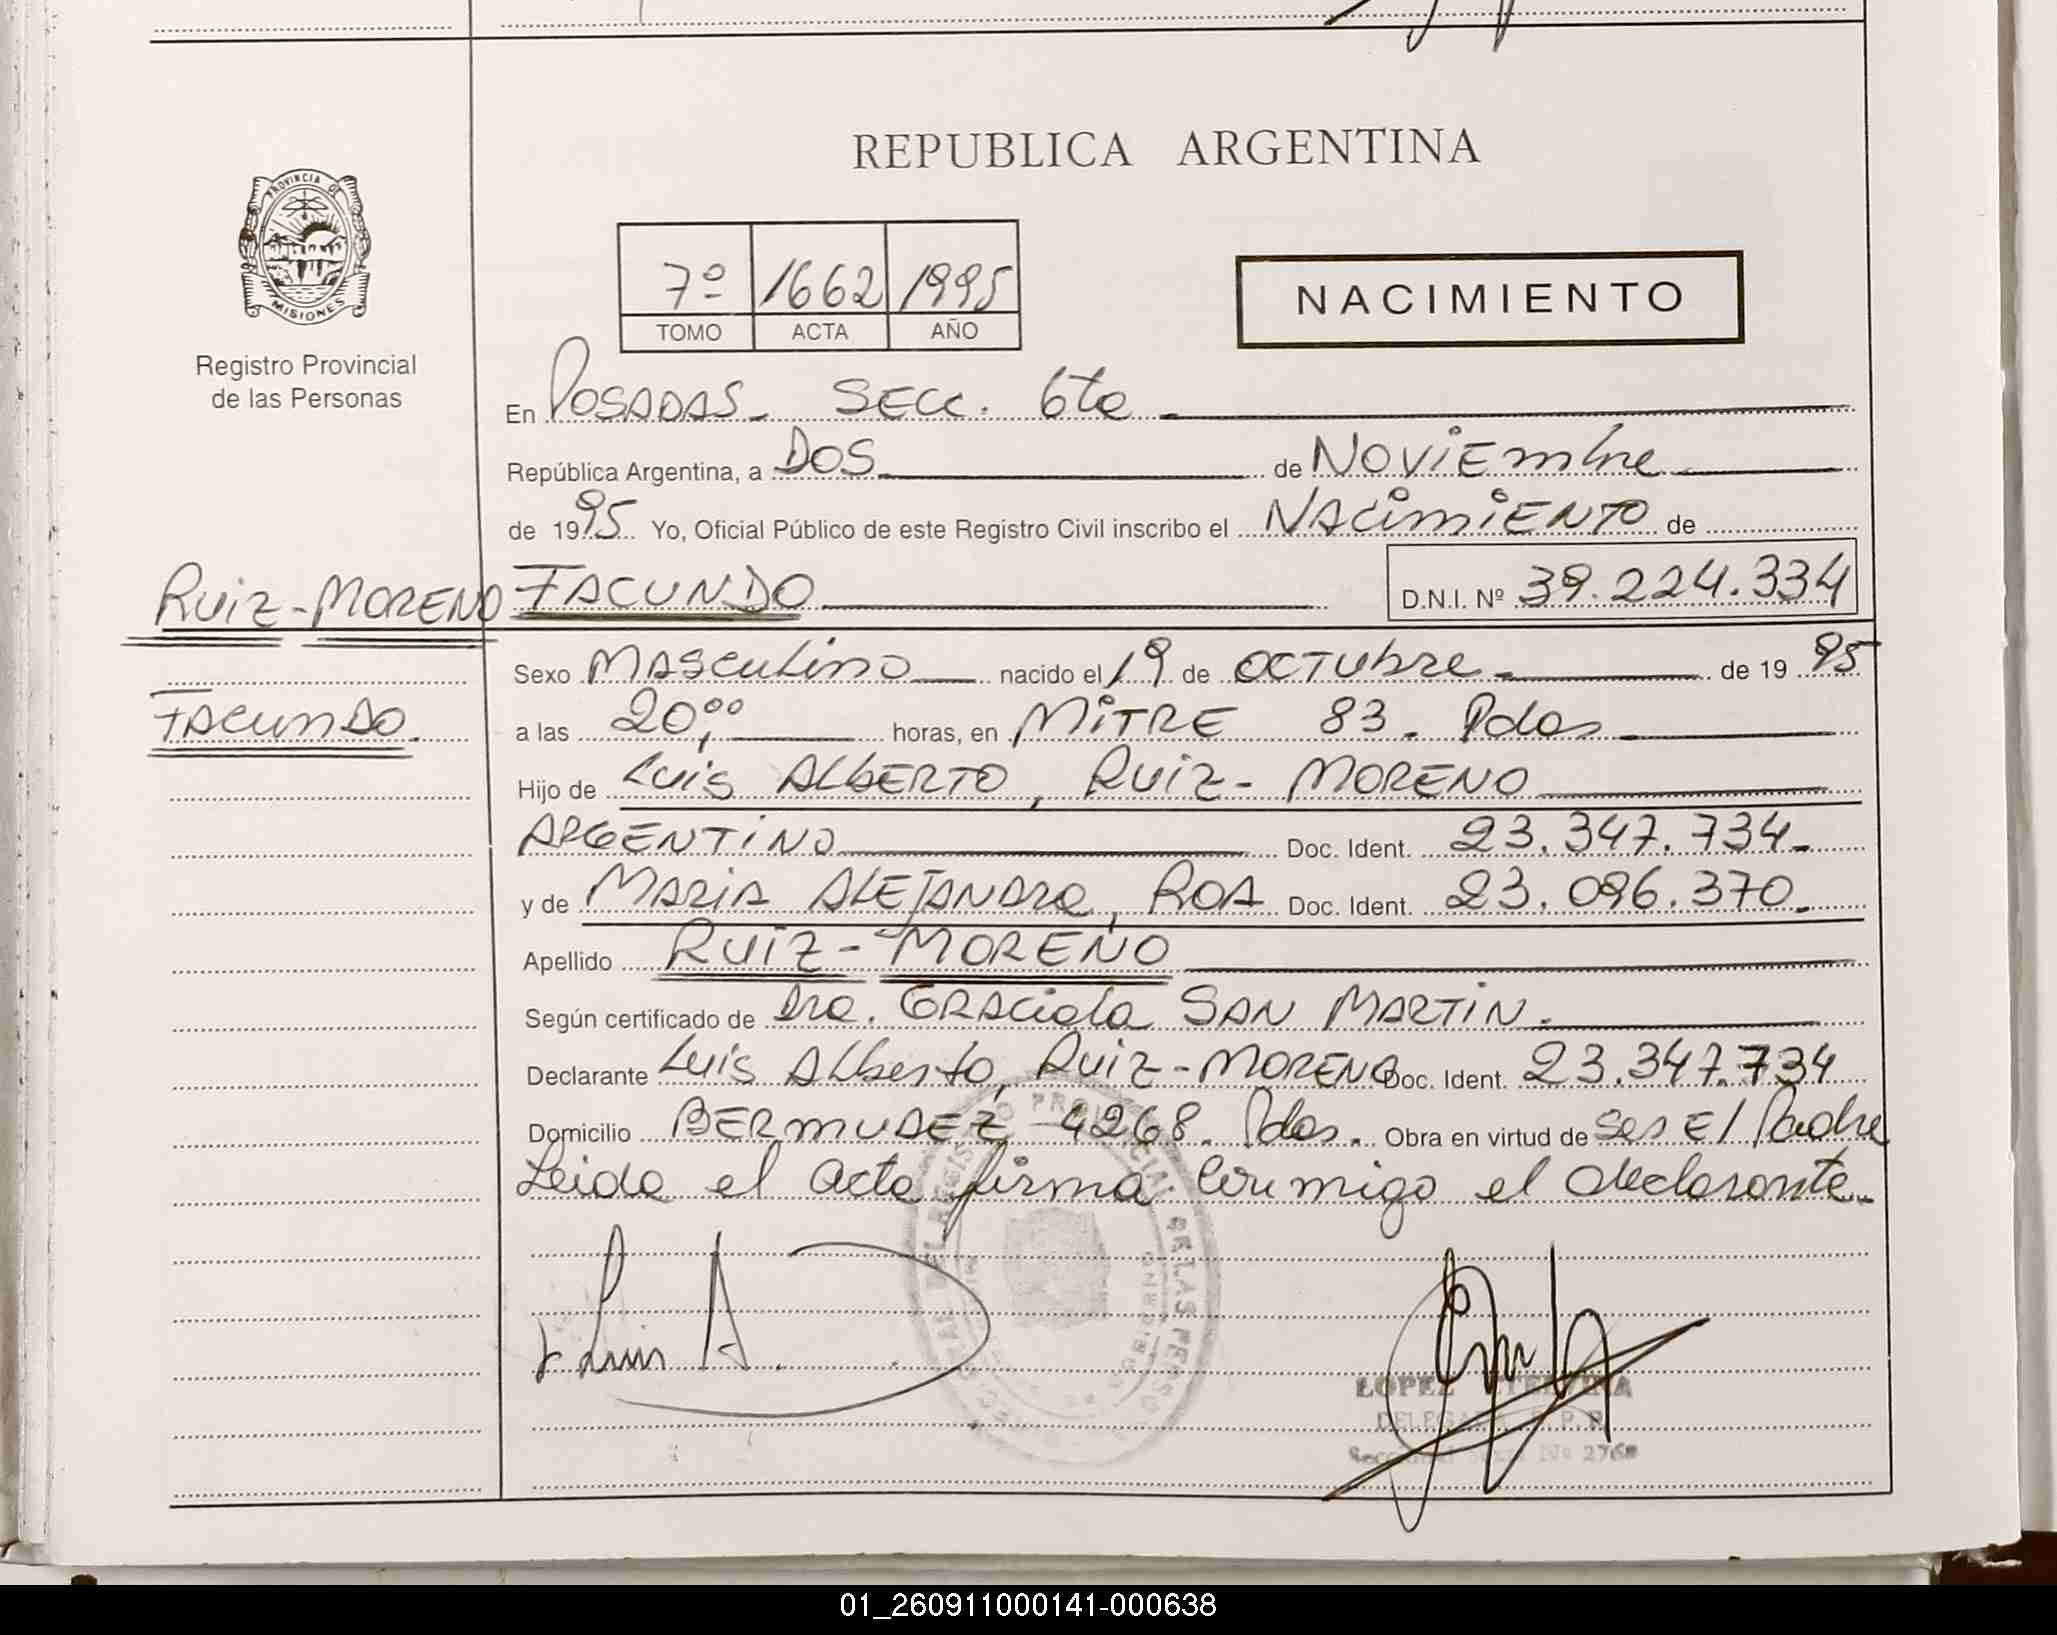 REPUBLICA ARGENTINA
PROVINCIA DE
MISIONES
Registro Provincial
de las Personas
7º 1662 1995
TOMO ACTA AÑO
NACIMIENTO
En POSADAS. SECC. 6ta
República Argentina, a DOS de NOVIEmbre
de 1995 Yo, Oficial Público de este Registro Civil inscribo el NACimiENTO de
Ruiz-MORENO FACUNDO D.N.I. Nº 39.224.334
Sexo MASCULINO nacido el 19 de OCTUbre de 19 95
FACUNDO.
a las 20,00 horas, en MiTRE 83. Pdas
Hijo de Luis ALbERTO, Ruiz- MORENO
ARGENTINO Doc. Ident. 23.347.734
y de MARIA ALEJANDRA, ROA Doc. Ident. 23.096.370.
Apellido RUIZ-MORENO
Según certificado de Dra. GRACiela SAN MARTIN.
Declarante Luis Alberto, Ruiz-MORENO Doc. Ident. 23.347.734
Domicilio BERMUDEZ 4268. Pdas. Obra en virtud de ser El Padre
Leida el acta firma conmigo el declarante
Luis A.
LOPEZ
DELEGADA
Nº 2768
01_260911000141-000638